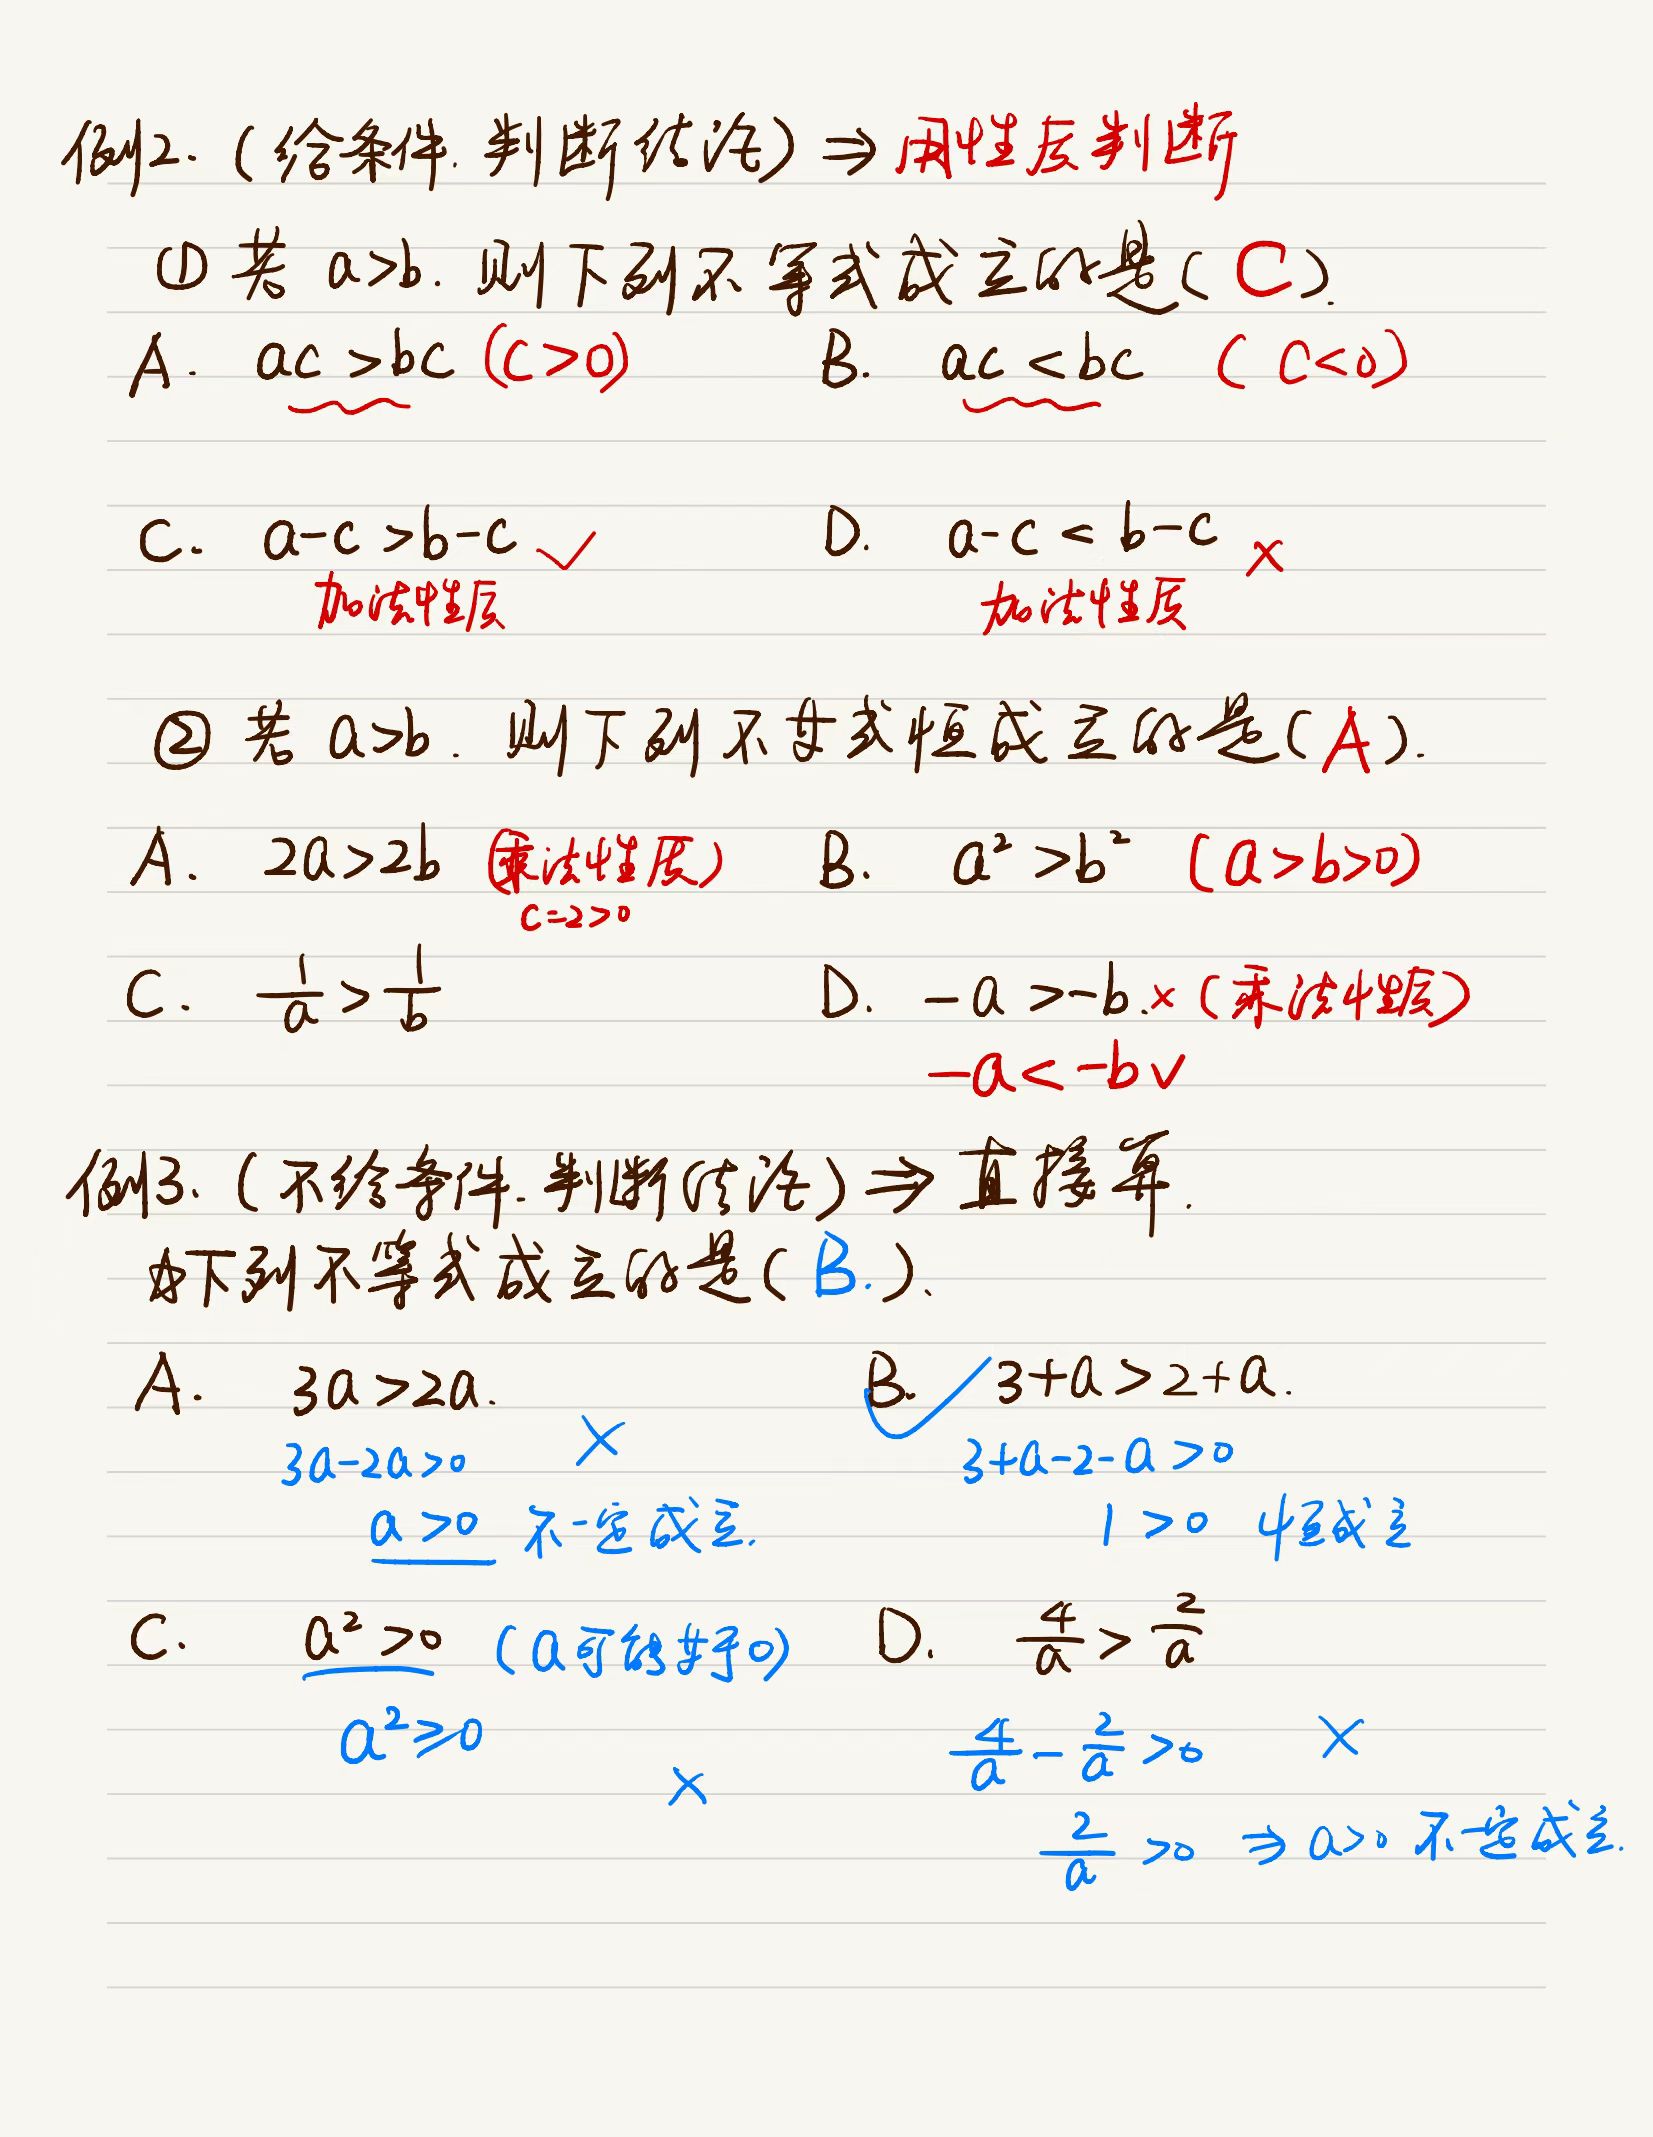 例2.(给条件.判断结论)⇒用性质判断
① 若 a>b. 则下列不等式成立的是( C ).
A. ac>bc (c>0) B. ac<bc (c<0)
C. a-c>b-c ✓ D. a-c<b-c ×
加法性质 加法性质
② 若 a>b. 则下列不等式恒成立的是( A ).
A. 2a>2b (乘法性质) B. a²>b² (a>b>0)
c=2>0
C. 1/a>1/b D. -a>-b.×(乘法性质)
-a<-b✓
例3.(不给条件.判断结论)⇒直接算.
☆下列不等式成立的是( B. ).
A. 3a>2a. B. ✓ 3+a>2+a.
3a-2a>0 × 3+a-2-a>0
a>0 不一定成立. 1>0 恒成立
C. a²>0 (a可能等于0) D. 4/a>2/a
a²≥0 × 4/a-2/a>0 ×
2/a>0 ⇒ a>0 不一定成立.